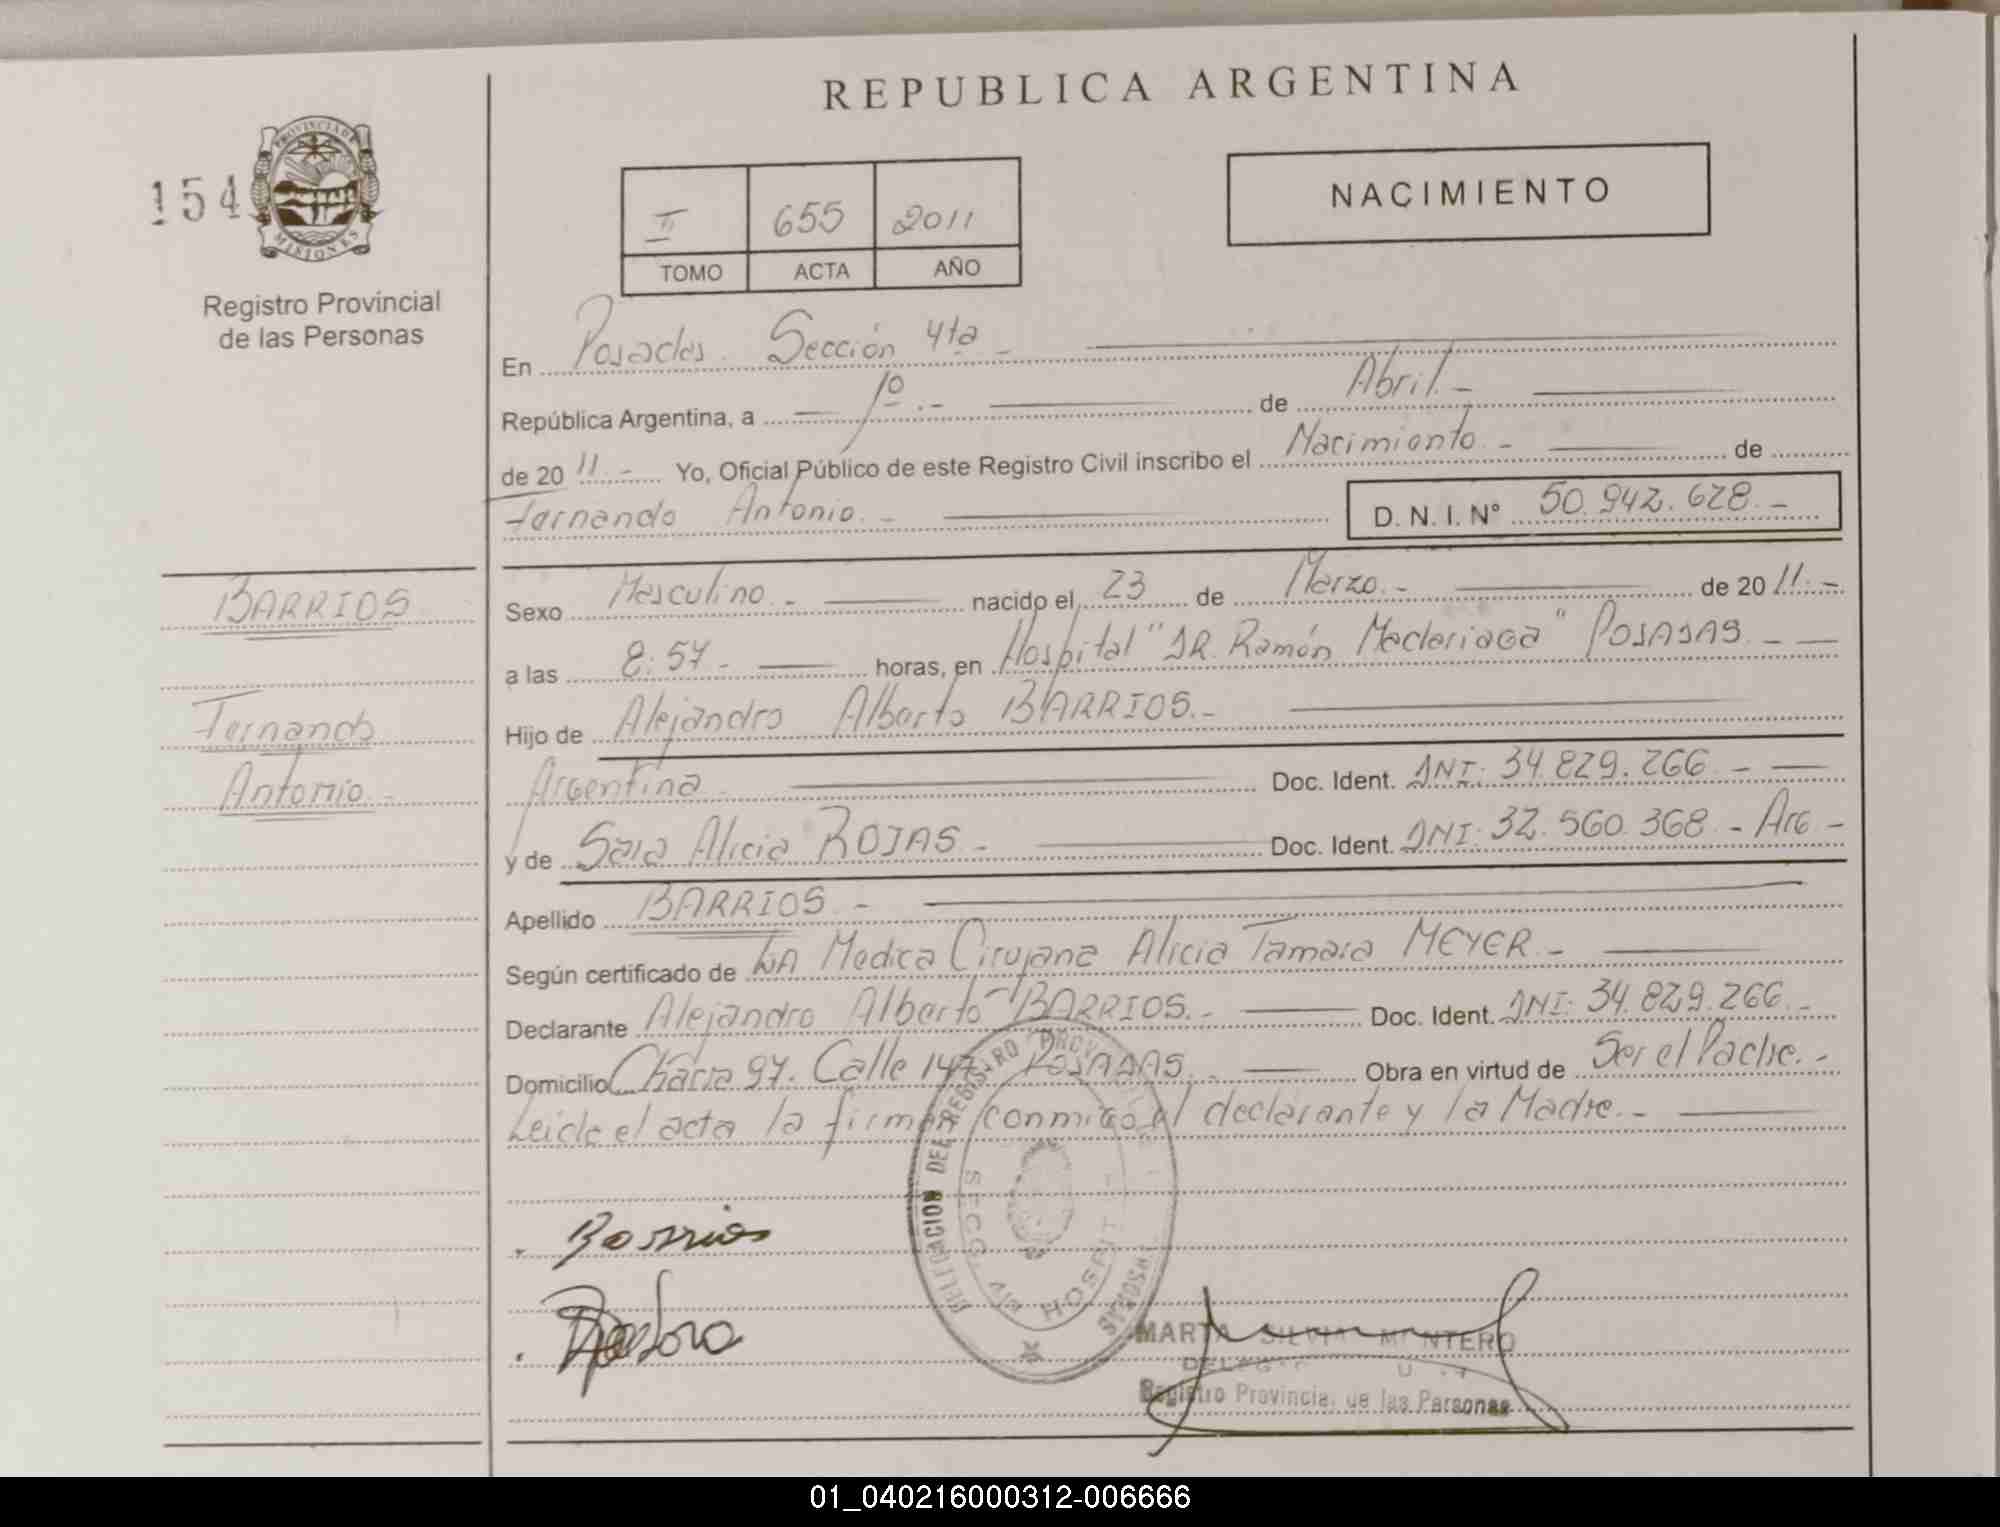 REPUBLICA ARGENTINA
154
PROVINCIA DE
MISIONES
Registro Provincial
de las Personas
II 655 2011
TOMO ACTA AÑO
NACIMIENTO
En Posadas. Sección 4ta -
República Argentina, a - 1º.- de Abril.-
de 20 11.- Yo, Oficial Público de este Registro Civil inscribo el Nacimiento.- de
Fernando Antonio.-
D. N. I. Nº 50.942.628.-
BARRIOS
Fernando
Antonio.-
Sexo Masculino.- nacido el 23 de Marzo.- de 20 11.-
a las 8:57.- horas, en Hospital "DR. Ramón Madariaga" POSADAS.-
Hijo de Alejandro Alberto BARRIOS.-
Argentina.- Doc. Ident. DNI: 34.829.266.-
y de Sara Alicia ROJAS.- Doc. Ident. DNI: 32.560.368.- Arg-
Apellido BARRIOS.-
Según certificado de LA Medica Cirujana Alicia Tamara MEYER.-
Declarante Alejandro Alberto BARRIOS.- Doc. Ident. DNI: 34.829.266.-
Domicilio Chacra 97. Calle 147 POSADAS.- Obra en virtud de Ser el Padre.-
Leida el acta la firman conmigo el declarante y la Madre.-
DELEGACION DEL REGISTRO PROVINCIAL PERSONAS
SECC. HOSPIT
Barrios
MARTA SILVIA MONTERO
Registro Provincial de las Personas
01_040216000312-006666